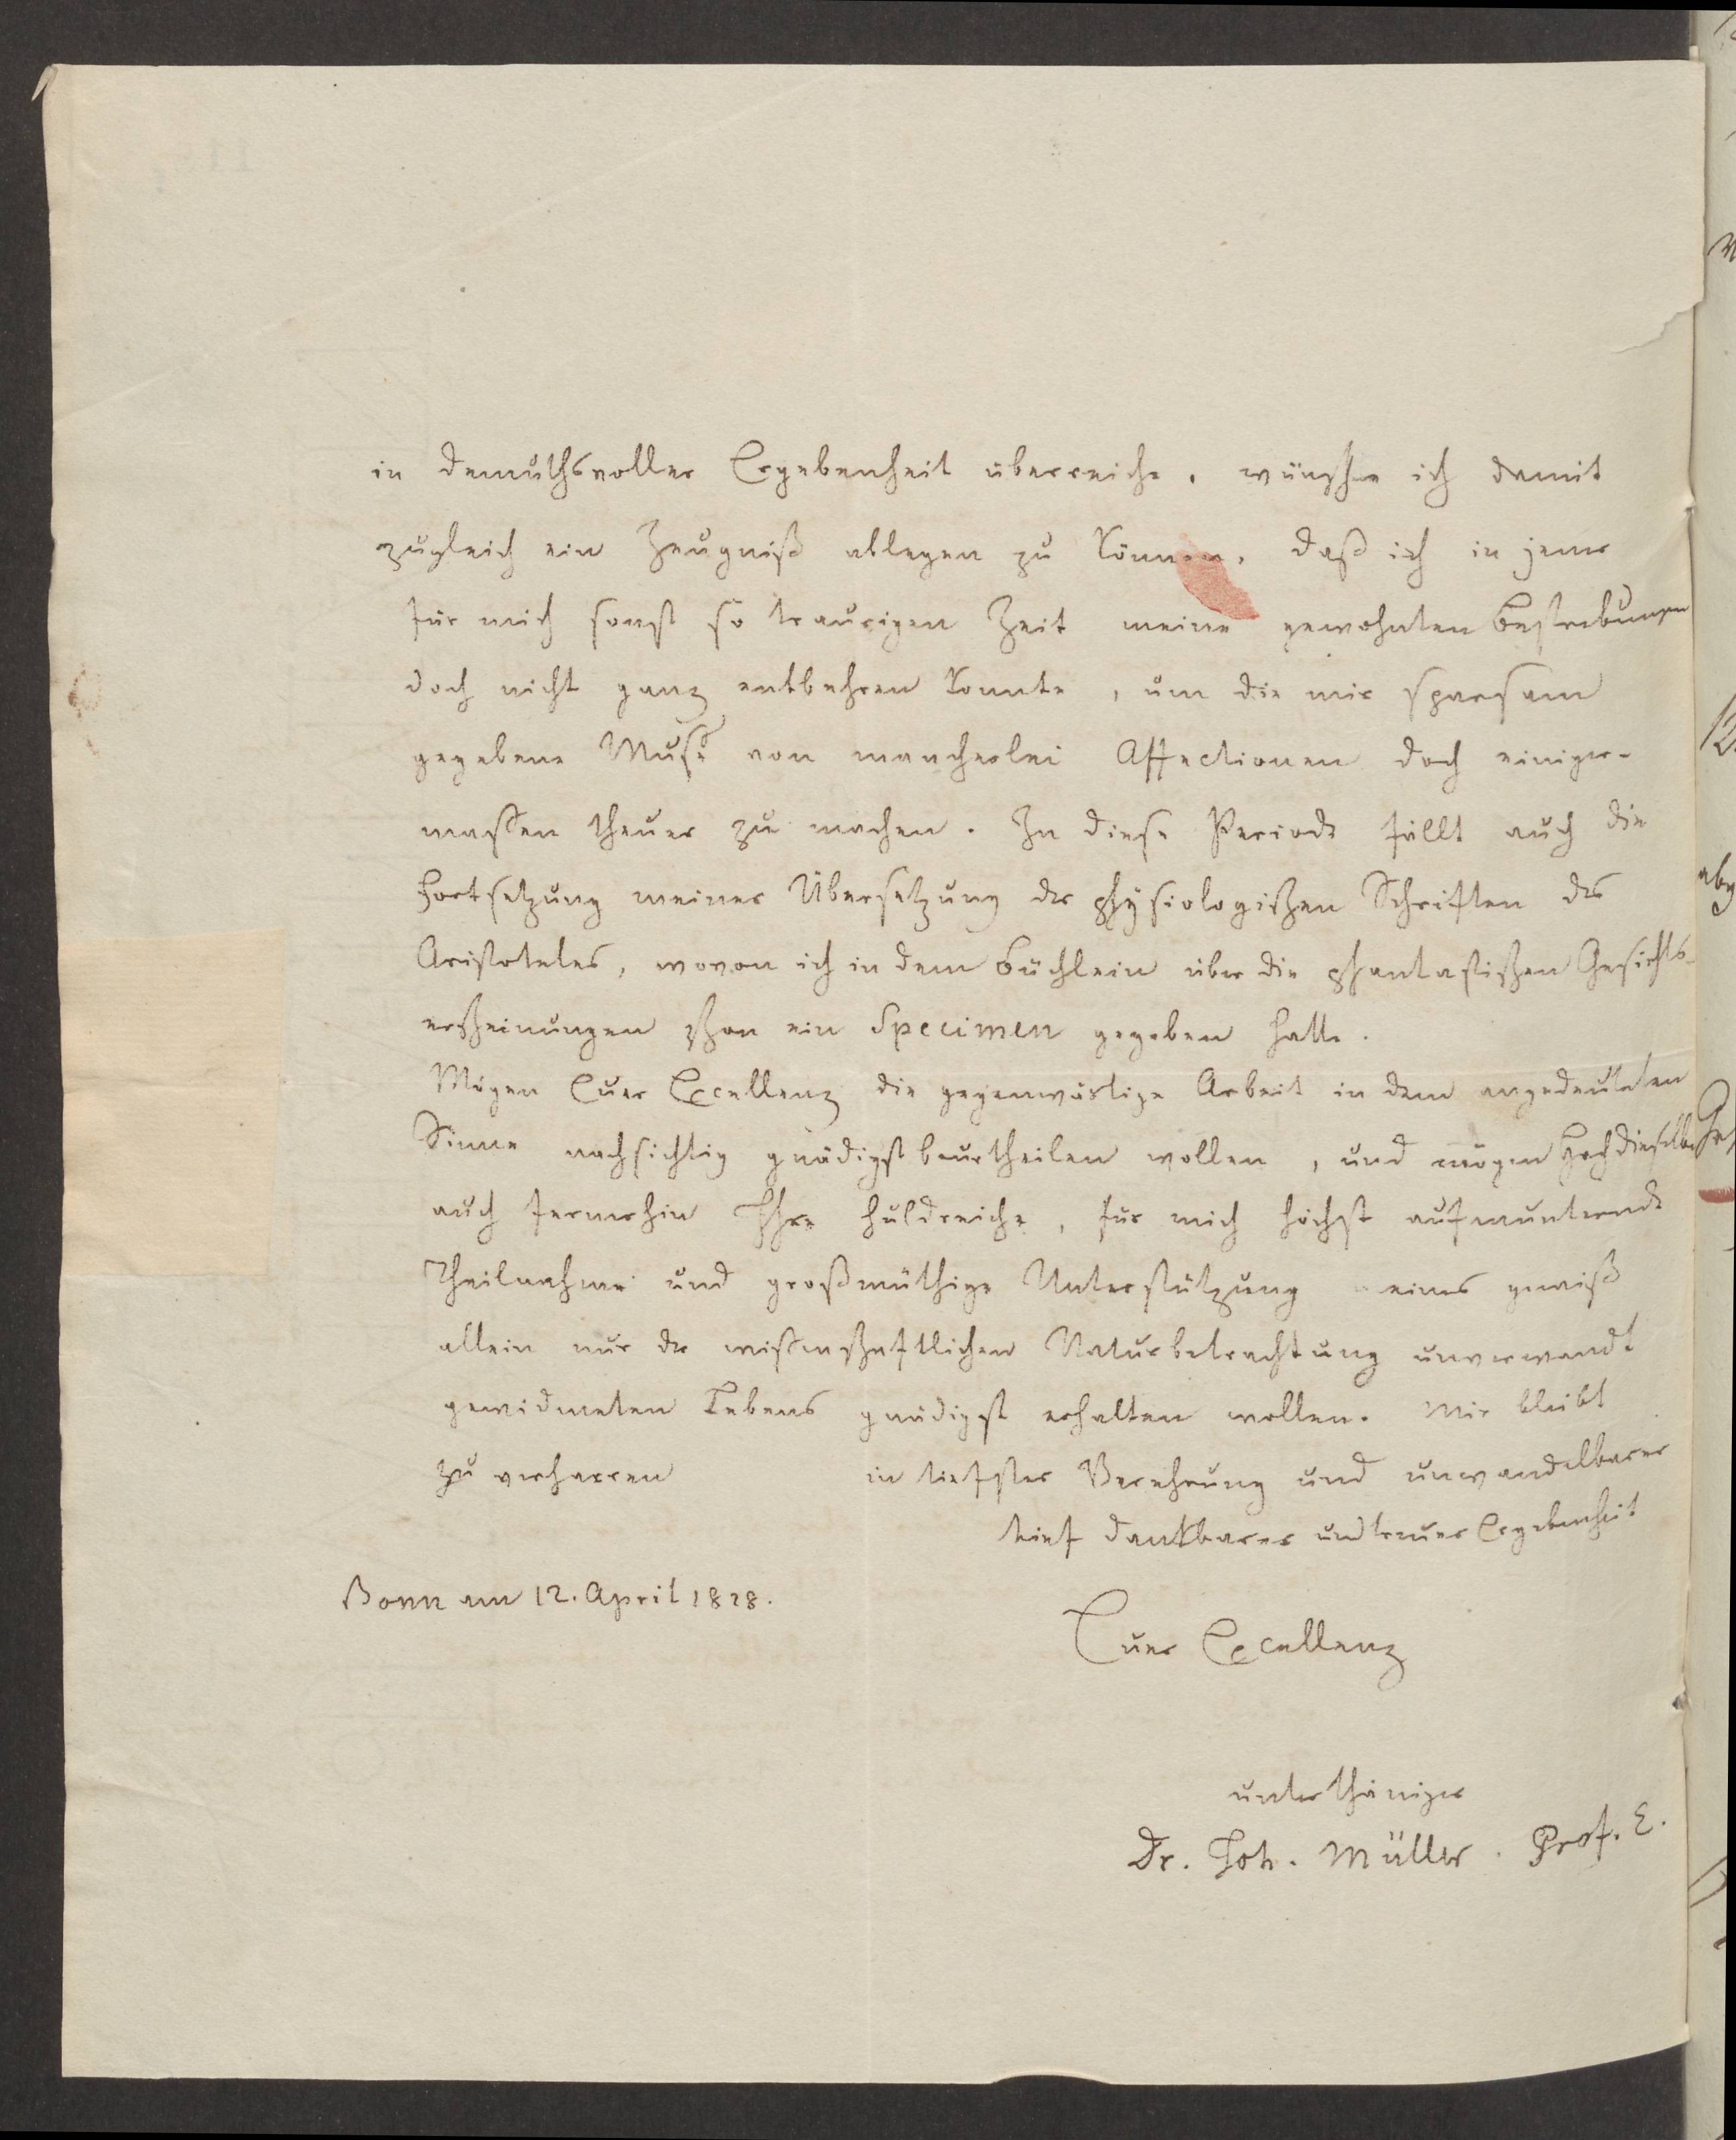 in demuthsvoller Ergebenheit überreiche, wünsche ich damit
zugleich ein Zeugniß ablegen zu können, daß ich in jener
für mich sonst so traurigen Zeit meine gewohnten Bestrebungen
doch nicht ganz entbehren konnte, um die mir sparsam
gegebene Muße von mancherlei Affectionen doch einiger-
maßen theuer zu machen. In diese Periode fällt auch die
Fortsetzung meiner Übersetzung der physiologischen Schriften des
Aristoteles, wovon ich in dem Büchlein über die phantastischen Gesichts-
erscheinungen schon ein Specimen gegeben hatte.
Mögen Euer Excellenz die gegenwärtige Arbeit in dem angedeuteten
Sinne nachsichtig gnädigst beurtheilen wollen, und mögen Hochdieselben
auch fernerhin Ihre huldreiche, für mich höchst aufmunternde
Theilnahme und großmüthige Unterstützung eines gewiß
allein nur der wissenschaftlichen Naturbetrachtung unverwandt
gewidmeten Lebens gnädigst erhalten wollen. Mir bleibt
zu verharren in tiefster Verehrung und unwandelbarer
tief dankbarer und treuer Ergebenheit
Bonn am 12. April 1828.
Euer Excellenz
unterthäniger
Dr. Joh. Müller. Prof. E.